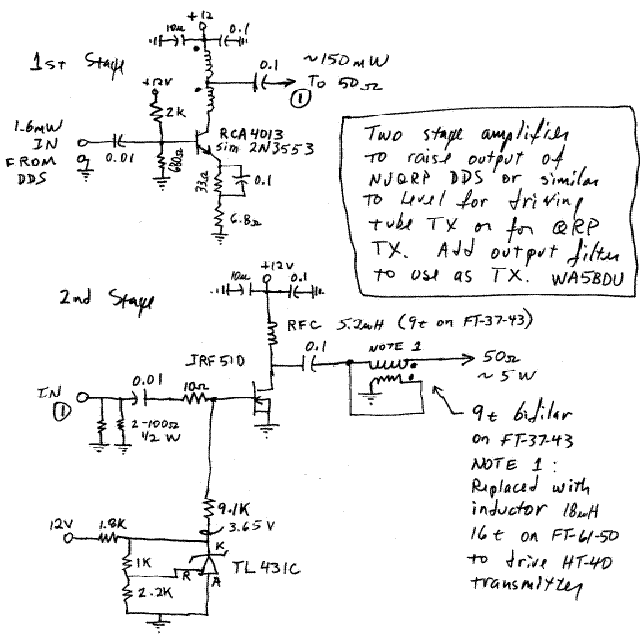 +12
10u
0.1
1st Stage
0.1
~150mW
TO 50Ω
①
+12V
2K
1.6mW
IN
FROM
DDS
0.01
680Ω
RCA4013
sim 2N3553
33Ω
0.1
6.8Ω
Two stage amplifier
to raise output of
NJQRP DDS or similar
to level for driving
tube TX or for QRP
TX. Add output filter
to use as TX. WA5BDU
2nd Stage
+12V
10u
0.1
RFC 5.2uH (9t on FT-37-43)
0.1
NOTE 1
50Ω
~5W
IRF510
IN
①
0.01
10Ω
2-100Ω
1/2 W
9t bifilar
on FT-37-43
NOTE 1:
Replaced with
inductor 18uH
16t on FT-61-50
to drive HT-40
transmitter
9.1K
3.65V
12V
1.8K
K
1K
R
A
TL431C
2.2K